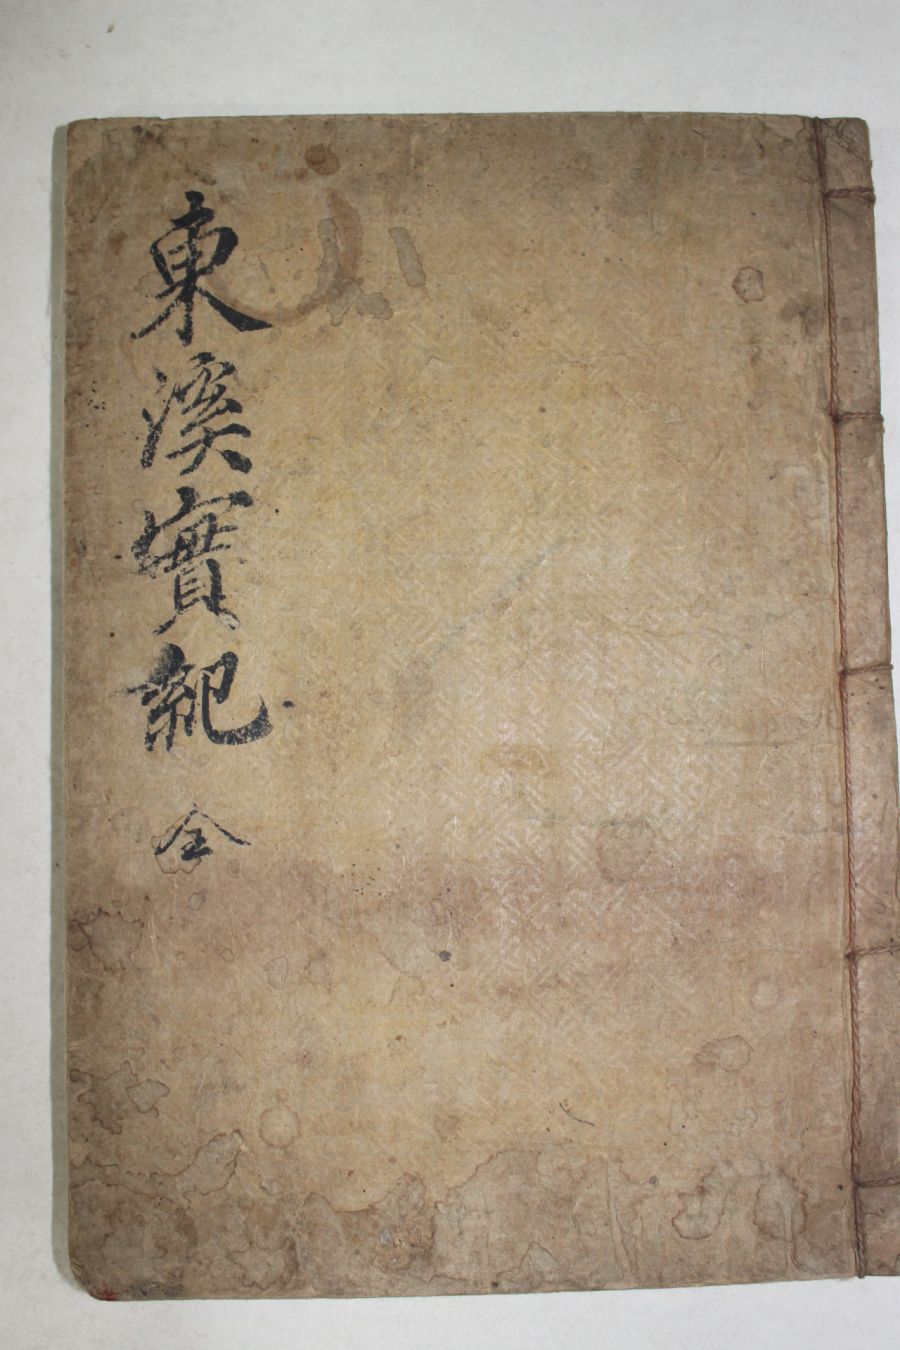 東溪實紀 全